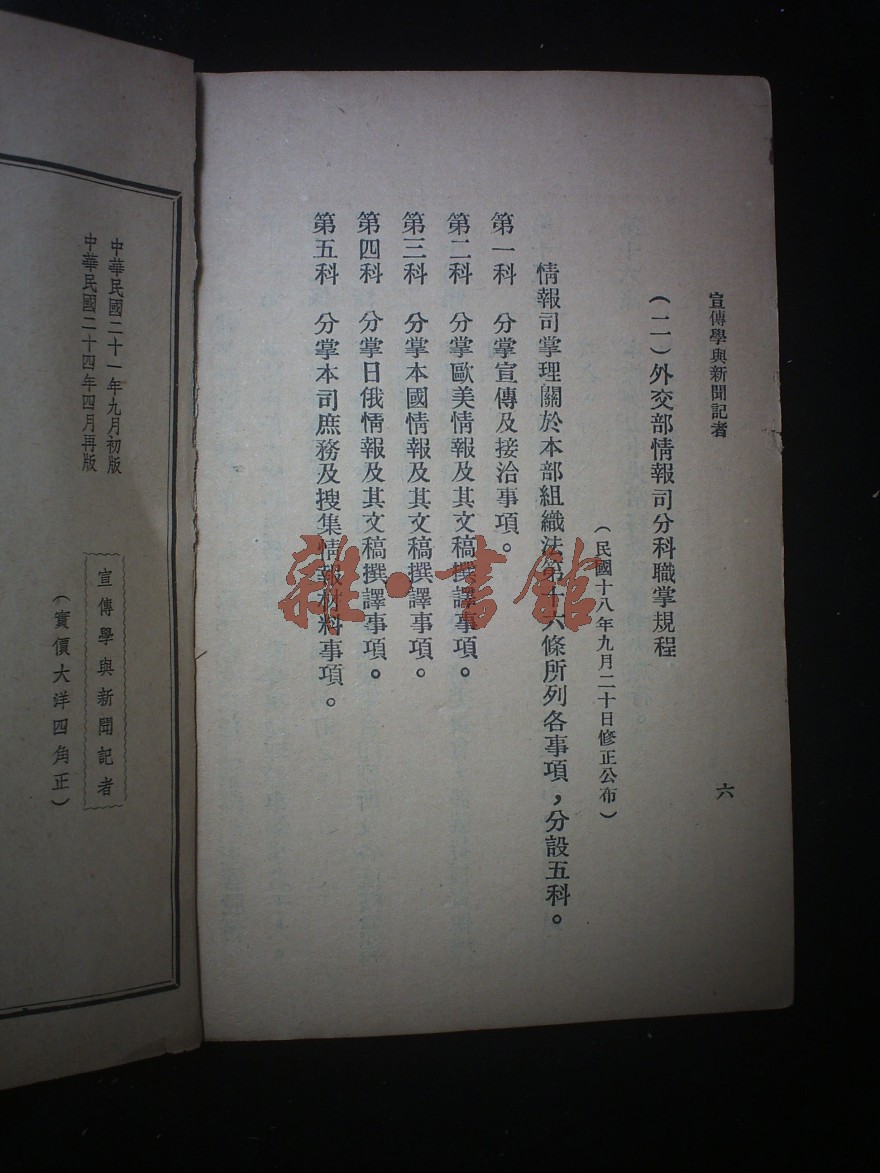 宣傳學與新聞記者
六
(二)外交部情報司分科職掌規程
(民國十八年九月二十日修正公布)
情報司掌理關於本部組織法第十六條所列各事項,分設五科。
第一科 分掌宣傳及接洽事項。
第二科 分掌歐美情報及其文稿撰譯事項。
第三科 分掌本國情報及其文稿撰譯事項。
第四科 分掌日俄情報及其文稿撰譯事項。
第五科 分掌本司庶務及搜集情報材料事項。
中華民國二十一年九月初版
中華民國二十四年四月再版
宣傳學與新聞記者
(實價大洋四角正)
雜·書館